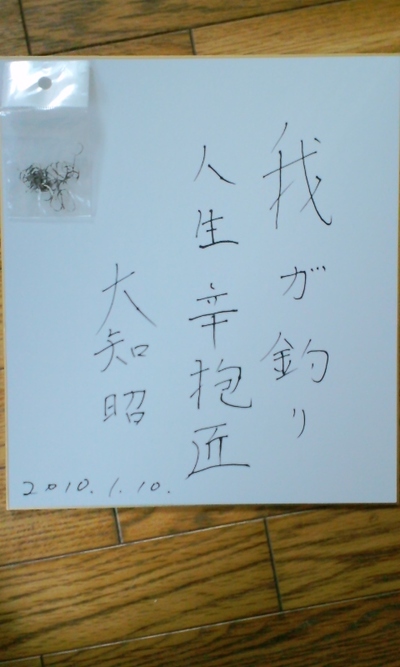 我が釣り
人生辛抱近
大知昭
2010.1.10.